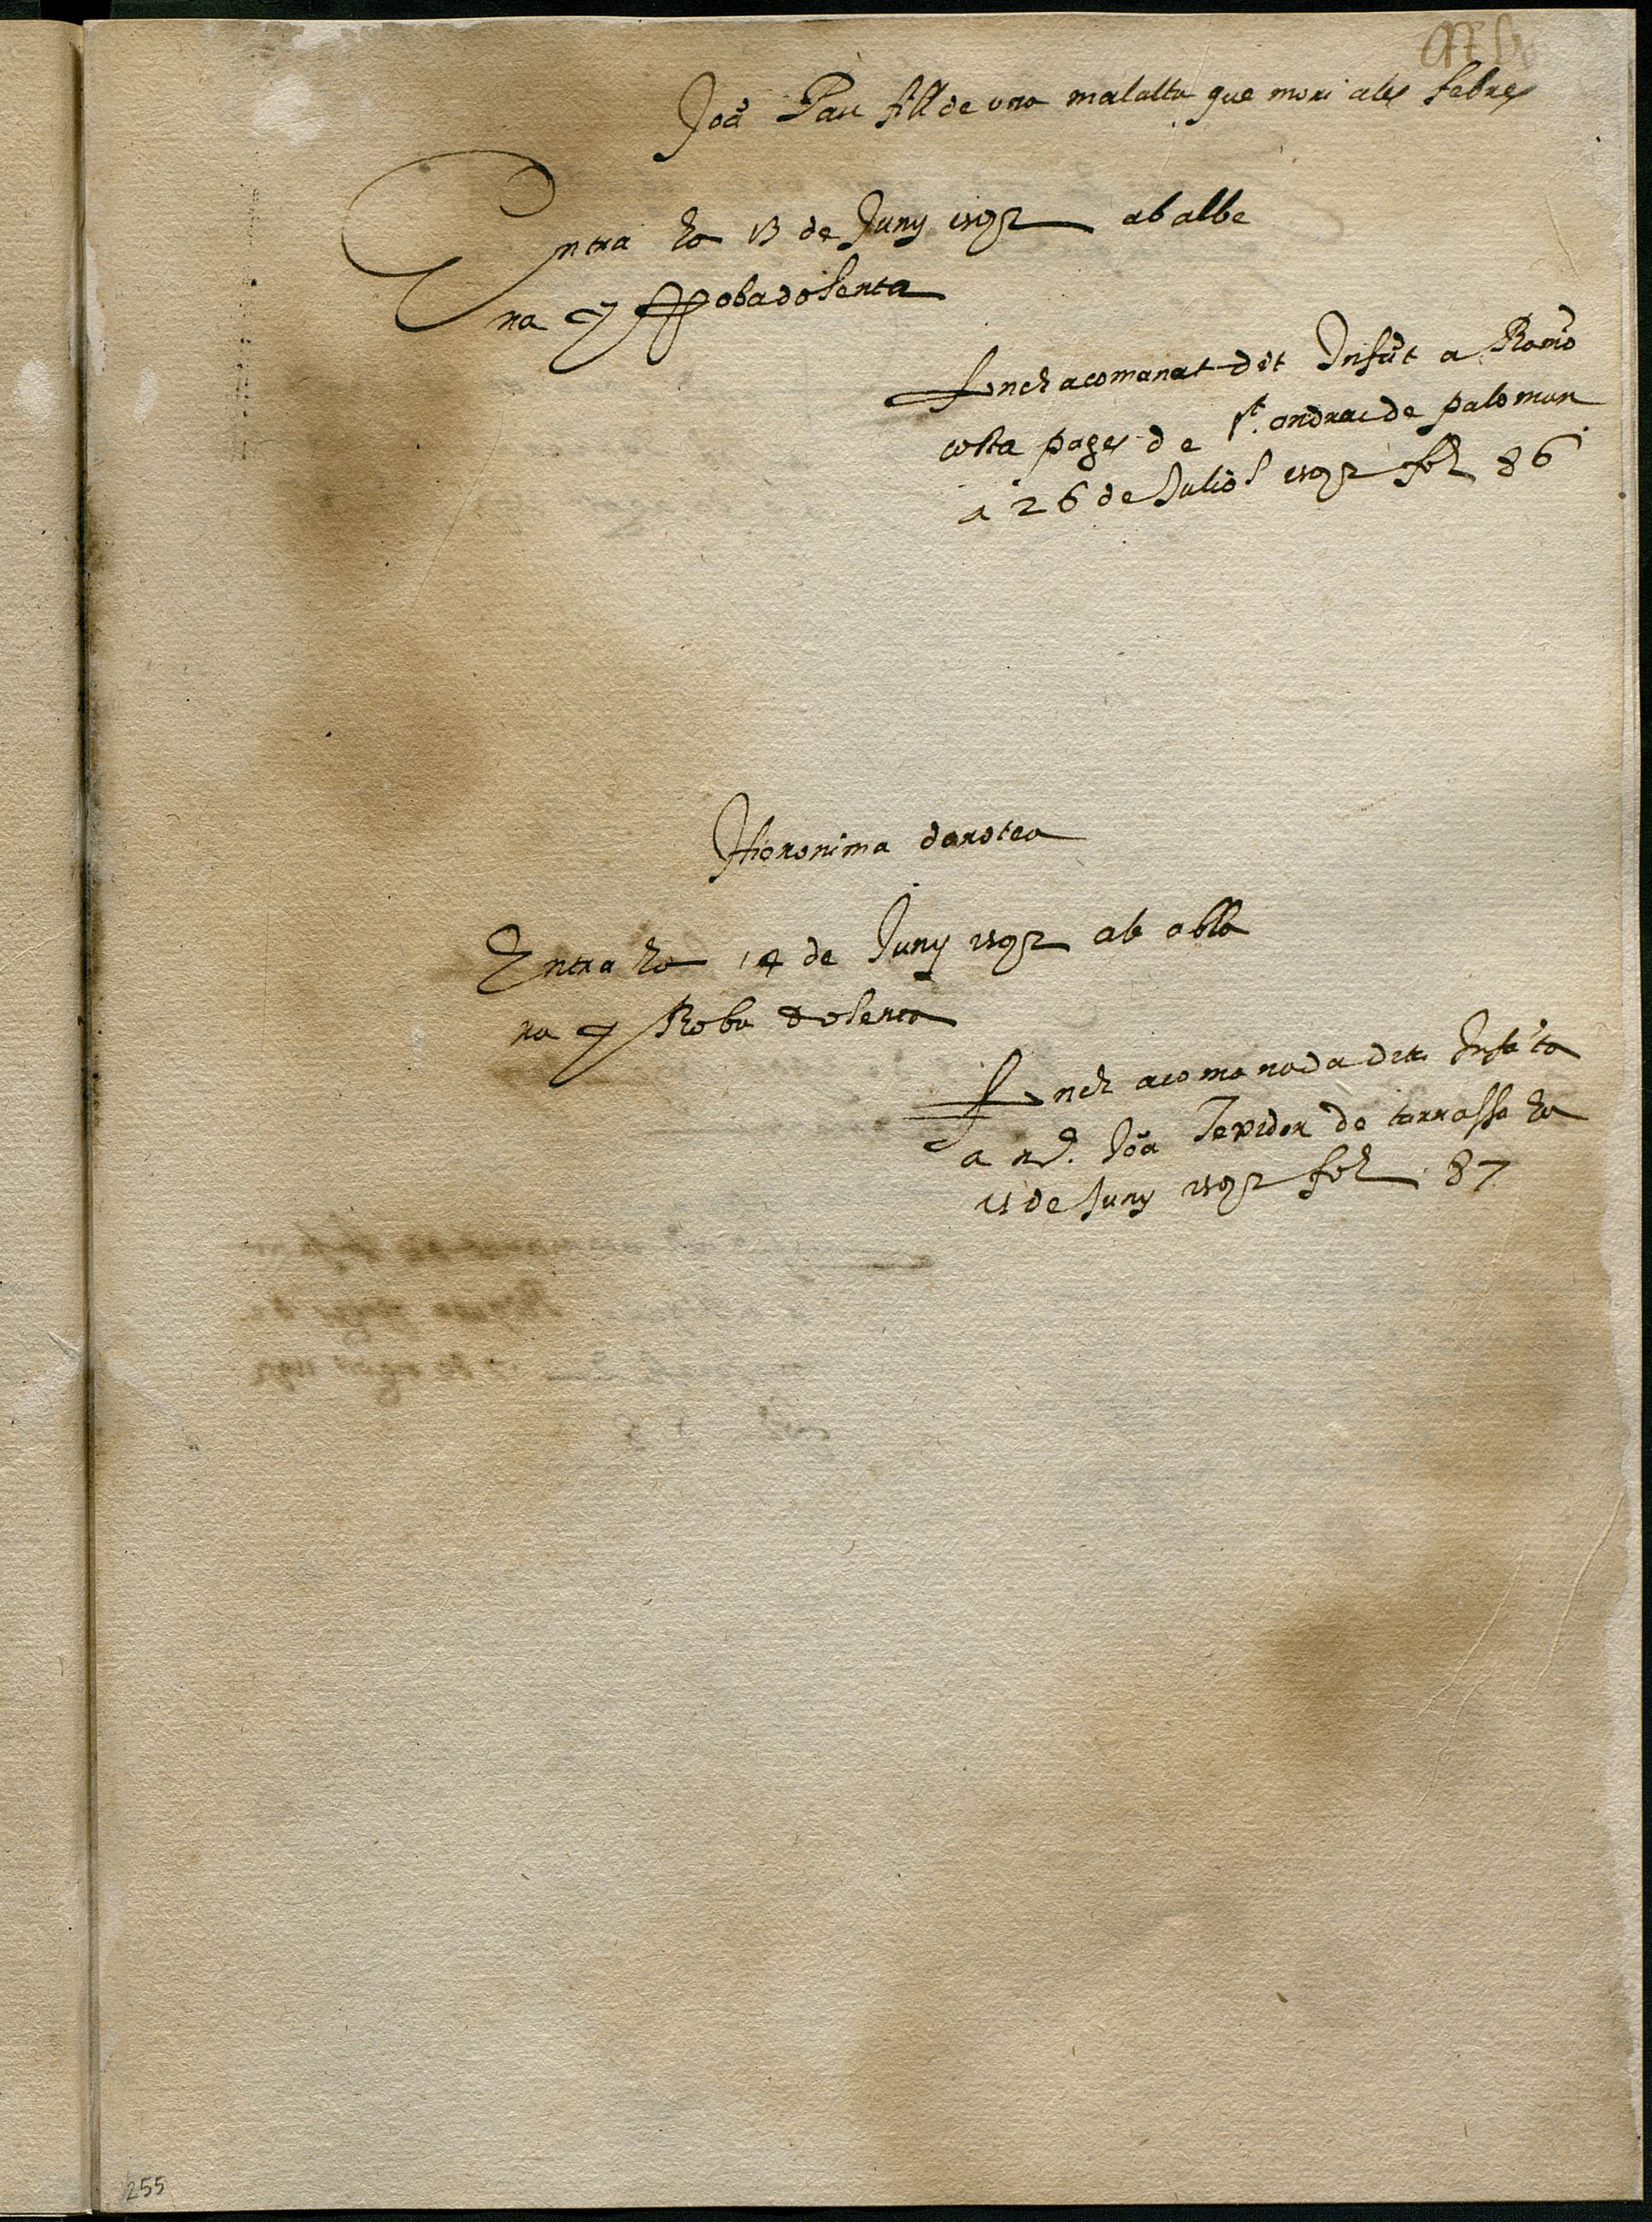 Joã Pau fill de una malalta que mori ales febres
Entra lo 13 de Juny 1592 ab albe
na y Robadolenta
fonch acomanat dit Infãt a Ramõ
costa pages de St. andreu de palomar
a 26 de Juliol 1592 fol 86
Hieronima dorotea
Entra lo 14 de Juny 1592 ab alba
na y Roba dolenta
fonch acomanada dita Infãta
a md. Joã Texidor de tarrassa lo
15 de Juny 1592 fol 87
255